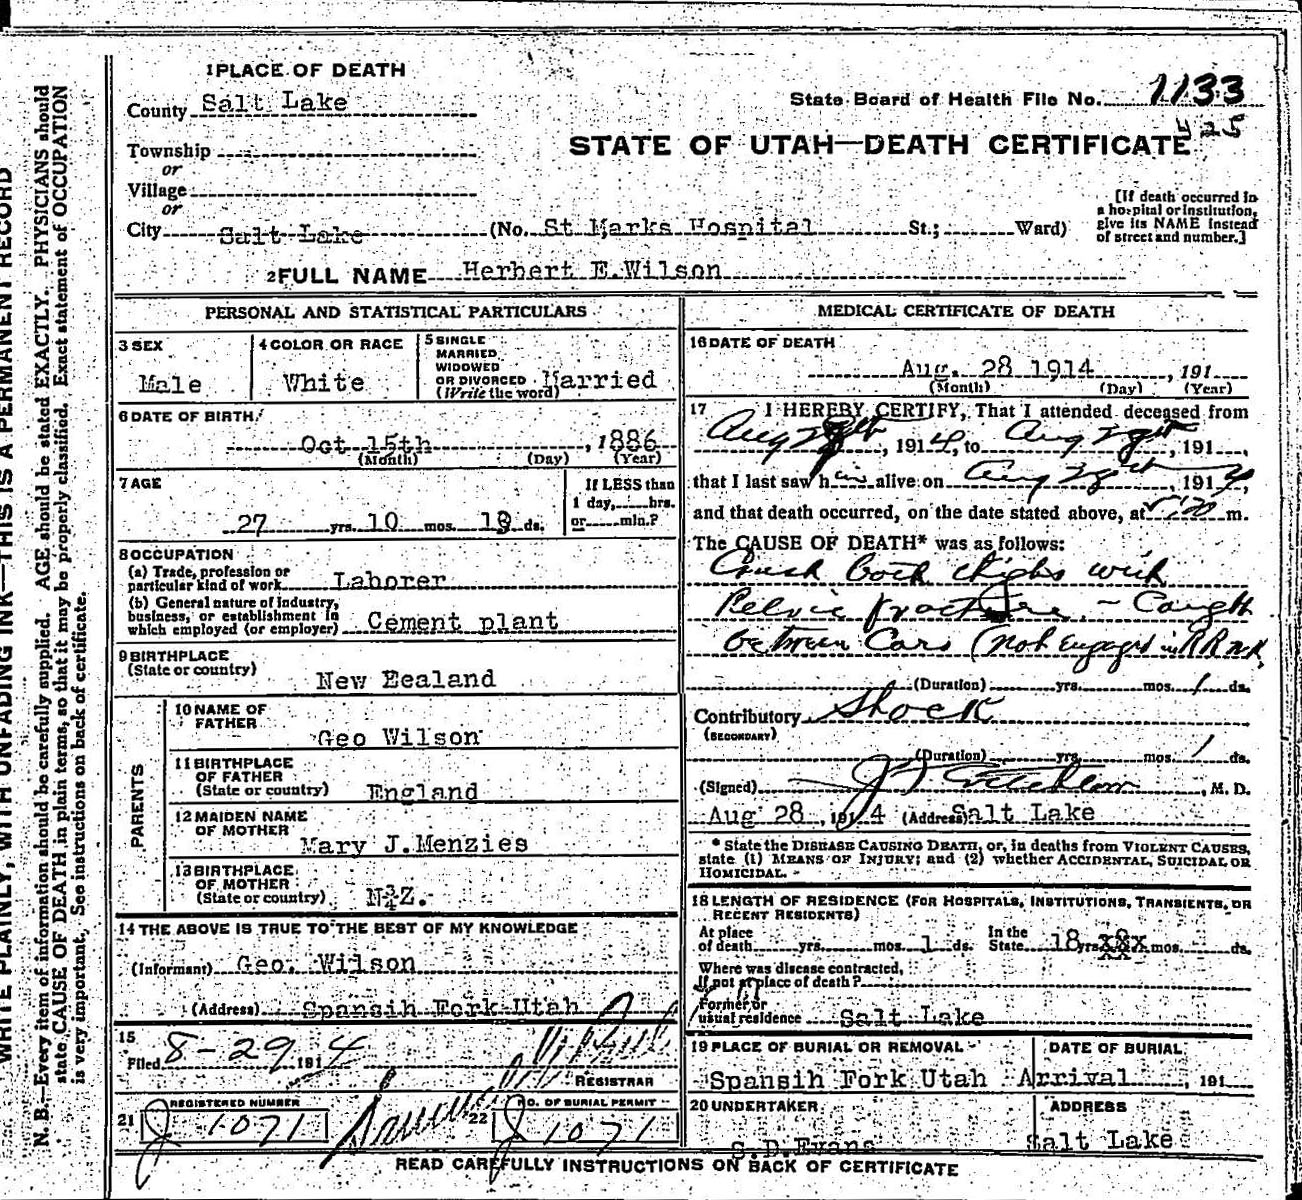 1 PLACE OF DEATH
County Salt Lake
State Board of Health File No. 1133
425
STATE OF UTAH—DEATH CERTIFICATE
Township
or
Village
or
City Salt Lake (No. St Marks Hospital St.; Ward)
[If death occurred in a hospital or institution, give its NAME instead of street and number.]
2 FULL NAME Herbert E.Wilson
PERSONAL AND STATISTICAL PARTICULARS
3 SEX
Male
4 COLOR OR RACE
White
5 SINGLE
MARRIED
WIDOWED
OR DIVORCED
(Write the word)
Married
6 DATE OF BIRTH
Oct 15th , 1886
(Month) (Day) (Year)
7 AGE
27 yrs. 10 mos. 13 ds.
If LESS than
1 day, hrs.
or min.?
8 OCCUPATION
(a) Trade, profession or
particular kind of work Laborer
(b) General nature of industry,
business, or establishment in
which employed (or employer) Cement plant
9 BIRTHPLACE
(State or country) New Eealand
PARENTS
10 NAME OF
FATHER
Geo Wilson
11 BIRTHPLACE
OF FATHER
(State or country) England
12 MAIDEN NAME
OF MOTHER
Mary J.Menzies
13 BIRTHPLACE
OF MOTHER
(State or country) N Z.
14 THE ABOVE IS TRUE TO THE BEST OF MY KNOWLEDGE
(Informant) Geo. Wilson
(Address) Spansih Fork Utah
15
Filed 8-29 1914
REGISTRAR
21 REGISTERED NUMBER
J 1071
22 NO. OF BURIAL PERMIT
J 1071
MEDICAL CERTIFICATE OF DEATH
16 DATE OF DEATH
Aug. 28 1914 , 191
(Month) (Day) (Year)
17 I HEREBY CERTIFY, That I attended deceased from
Aug 28th , 1914, to Aug 28th , 191 ,
that I last saw him alive on Aug 28th , 1914,
and that death occurred, on the date stated above, at 5:20 m.
The CAUSE OF DEATH* was as follows:
Crush both thighs with
Pelvic fracture - Caught
between Cars (not engaged in RR
(Duration) yrs. mos. 1 ds.
Contributory Shock
(SECONDARY)
(Duration) yrs. mos. 1 ds.
(Signed) , M. D.
Aug 28 , 1914 (Address) Salt Lake
* State the DISEASE CAUSING DEATH, or, in deaths from VIOLENT CAUSES,
state (1) MEANS OF INJURY; and (2) whether ACCIDENTAL, SUICIDAL OR
HOMICIDAL.
18 LENGTH OF RESIDENCE (FOR HOSPITALS, INSTITUTIONS, TRANSIENTS, OR
RECENT RESIDENTS)
At place
of death yrs. mos. 1 ds. In the
State 18 yrs. x8x mos. ds.
Where was disease contracted,
If not at place of death?
Former or
usual residence Salt Lake
19 PLACE OF BURIAL OR REMOVAL
Spansih Fork Utah
DATE OF BURIAL
Arrival , 191
20 UNDERTAKER
S.D.Evans
ADDRESS
Salt Lake
READ CAREFULLY INSTRUCTIONS ON BACK OF CERTIFICATE
WRITE PLAINLY, WITH UNFADING INK—THIS IS A PERMANENT RECORD
N. B.—Every item of information should be carefully supplied. AGE should be stated EXACTLY. PHYSICIANS should
state CAUSE OF DEATH in plain terms, so that it may be properly classified. Exact statement of OCCUPATION
is very important. See instructions on back of certificate.